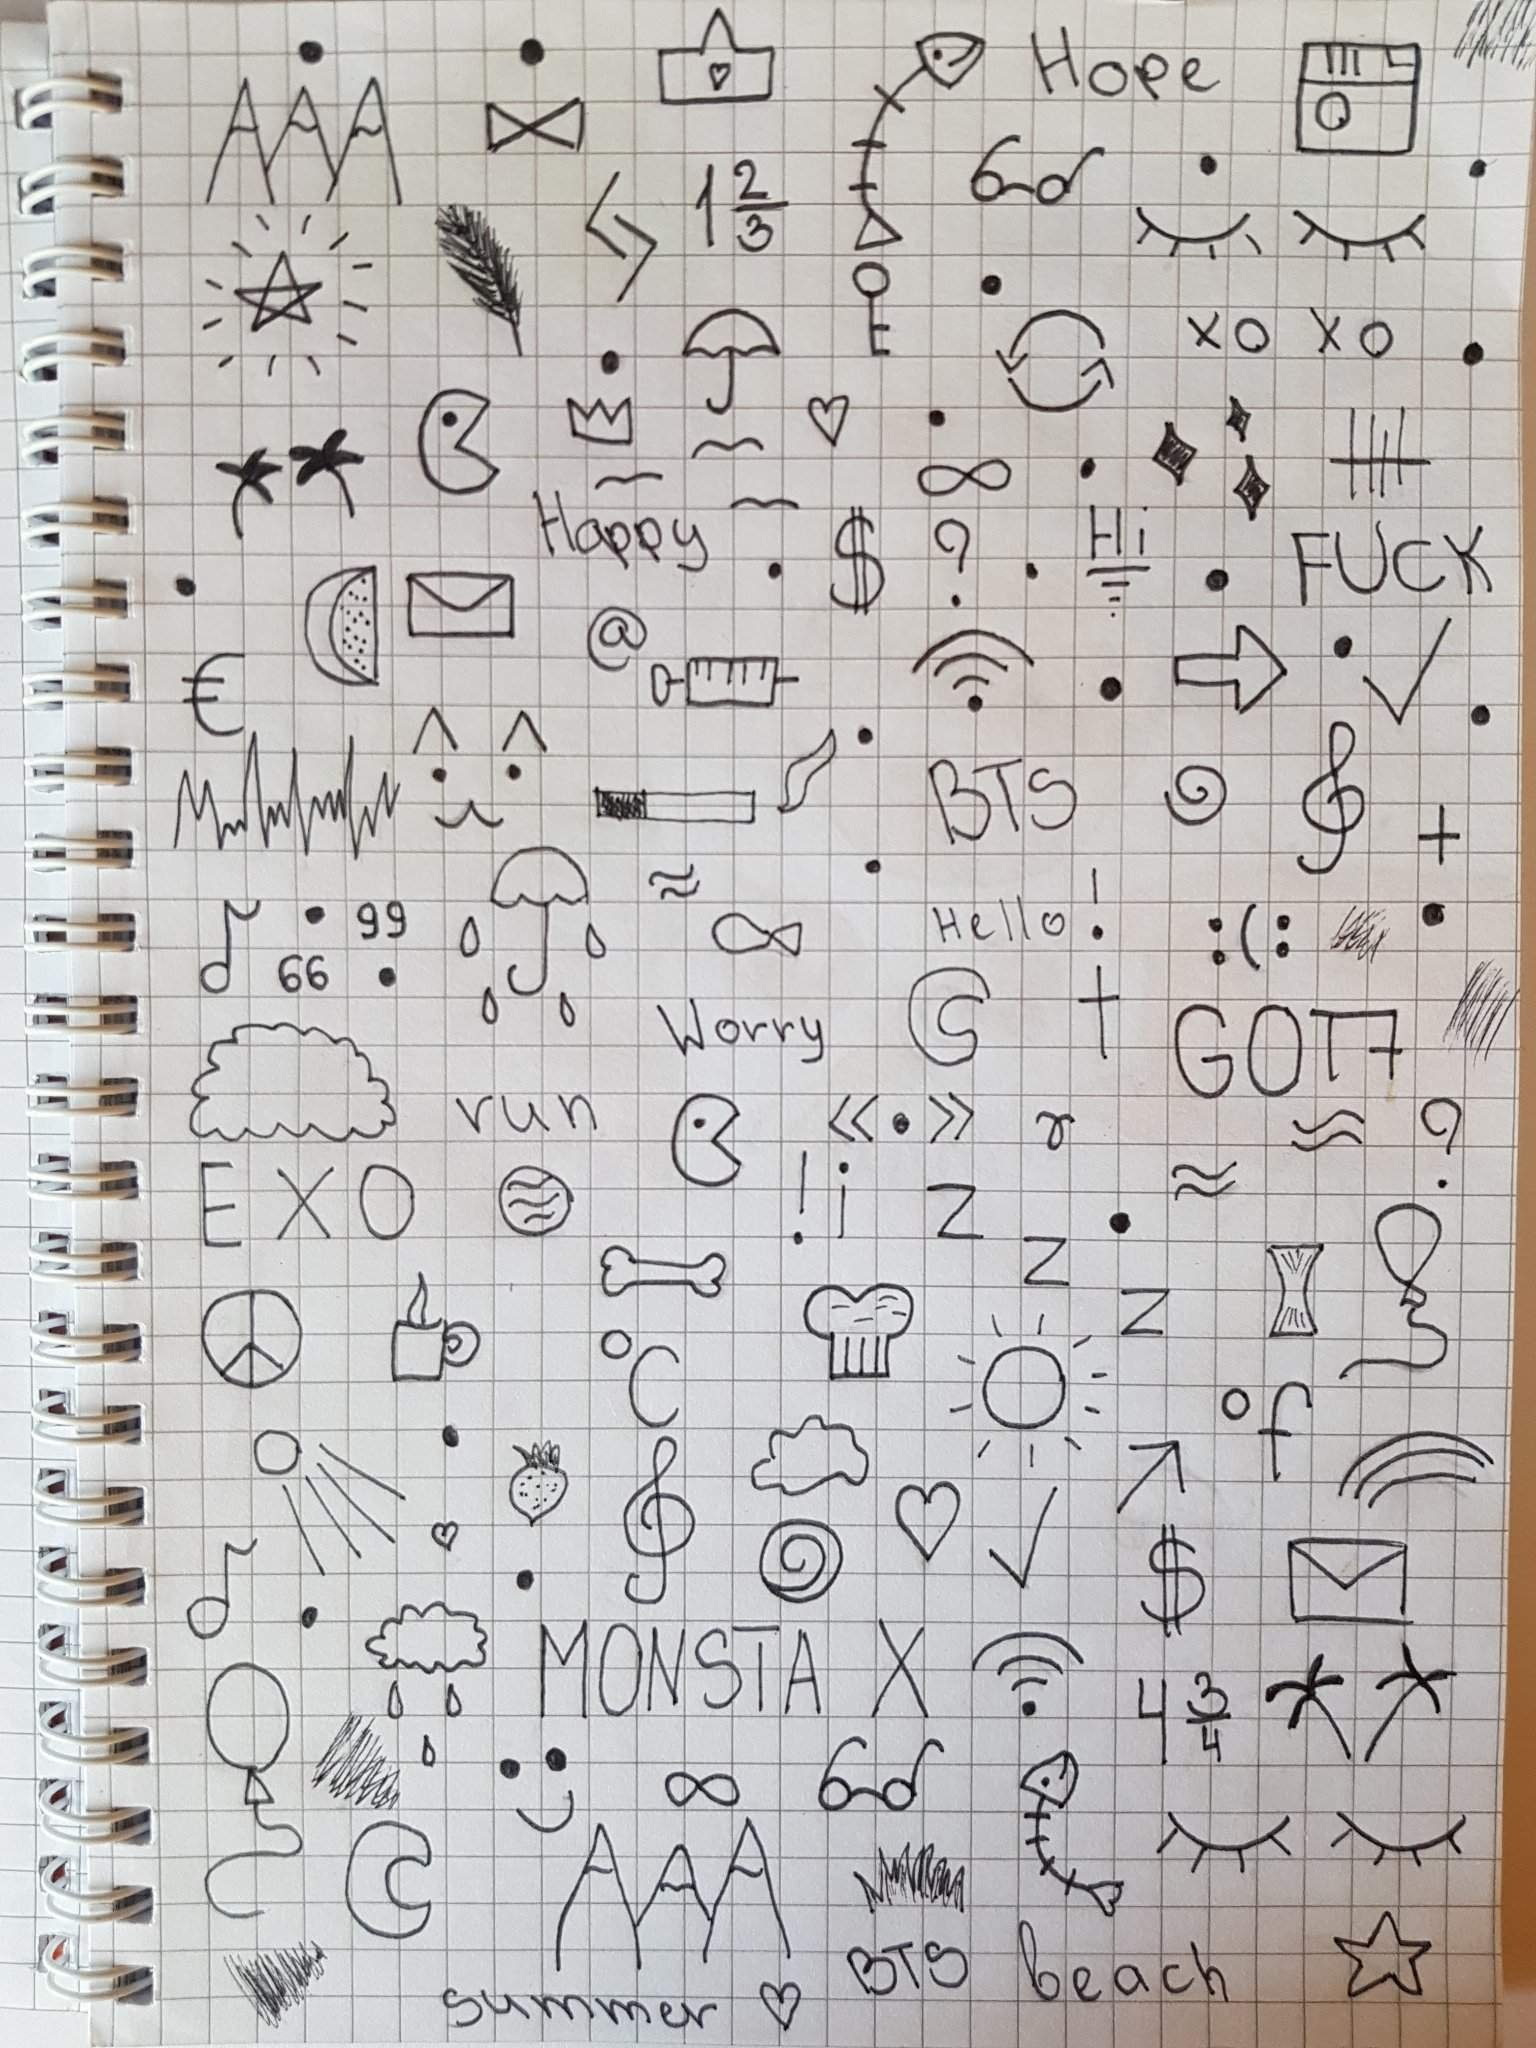 Hope
1 2/3
xo xo
Happy
$ ? Hi FUCK
@
€
BTS
+
99
66
Hello!
:(:
Worry
GOT7
run
« • »
r
?
EXO
! i
z
z
z
°C
°f
$
MONSTA X
4 3/4
BTS
beach
summer